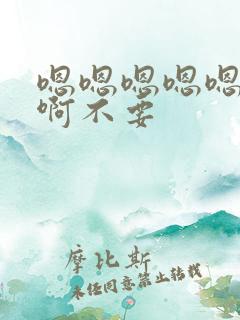 嗯嗯嗯嗯嗯
啊不要
摩比斯
未经同意禁止转载